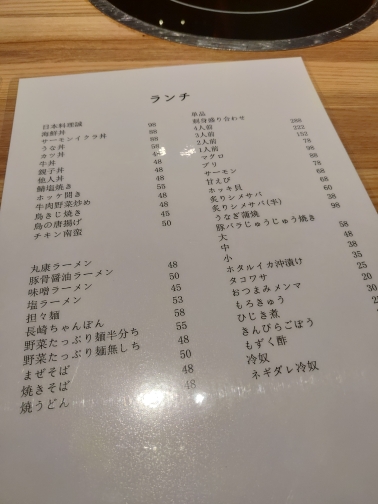 ランチ
日本料理誠 98
海鮮丼 88
サーモンイクラ丼 68
うな丼 58
カツ丼
牛丼 48
親子丼 48
他人丼 48
鯖塩焼き 55
ホッケ開き 48
牛肉野菜炒め 48
鳥きじ焼き 45
鳥の唐揚げ 50
チキン南蛮
丸康ラーメン 48
豚骨醤油ラーメン 50
味噌ラーメン 45
塩ラーメン 53
担々麺 58
長崎ちゃんぽん 55
野菜たっぷり麺半分ち 48
野菜たっぷり麺無しち 50
まぜそば 48
焼きそば 48
焼うどん
単品
刺身盛り合わせ
4人前 288
3人前 222
2人前 152
1人前 78
マグロ 98
ブリ 88
サーモン 78
甘えび 68
ホッキ貝 68
炙りシメサバ 60
炙りシメサバ(半) 38
うなぎ蒲焼 98
豚バラじゅうじゅう焼き
大 58
中 48
小 38
ホタルイカ沖漬け 35
タコワサ 25
おつまみメンマ 20
もろきゅう
ひじき煮
きんぴらごぼう
もずく酢
冷奴
ネギダレ冷奴